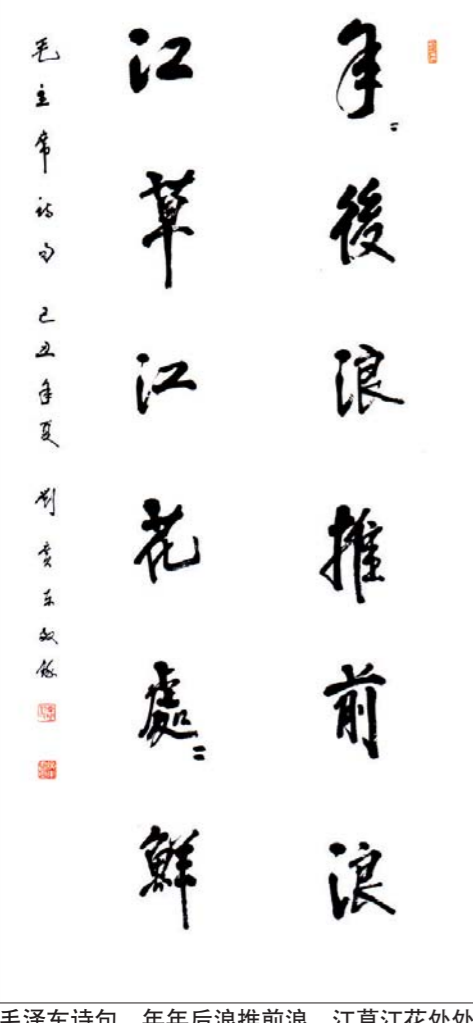 年〻後浪推前浪
江草江花處〻鮮
毛主席诗句 己丑年夏 劉奕东敬録
毛泽东诗句 年年后浪推前浪 江草江花处处